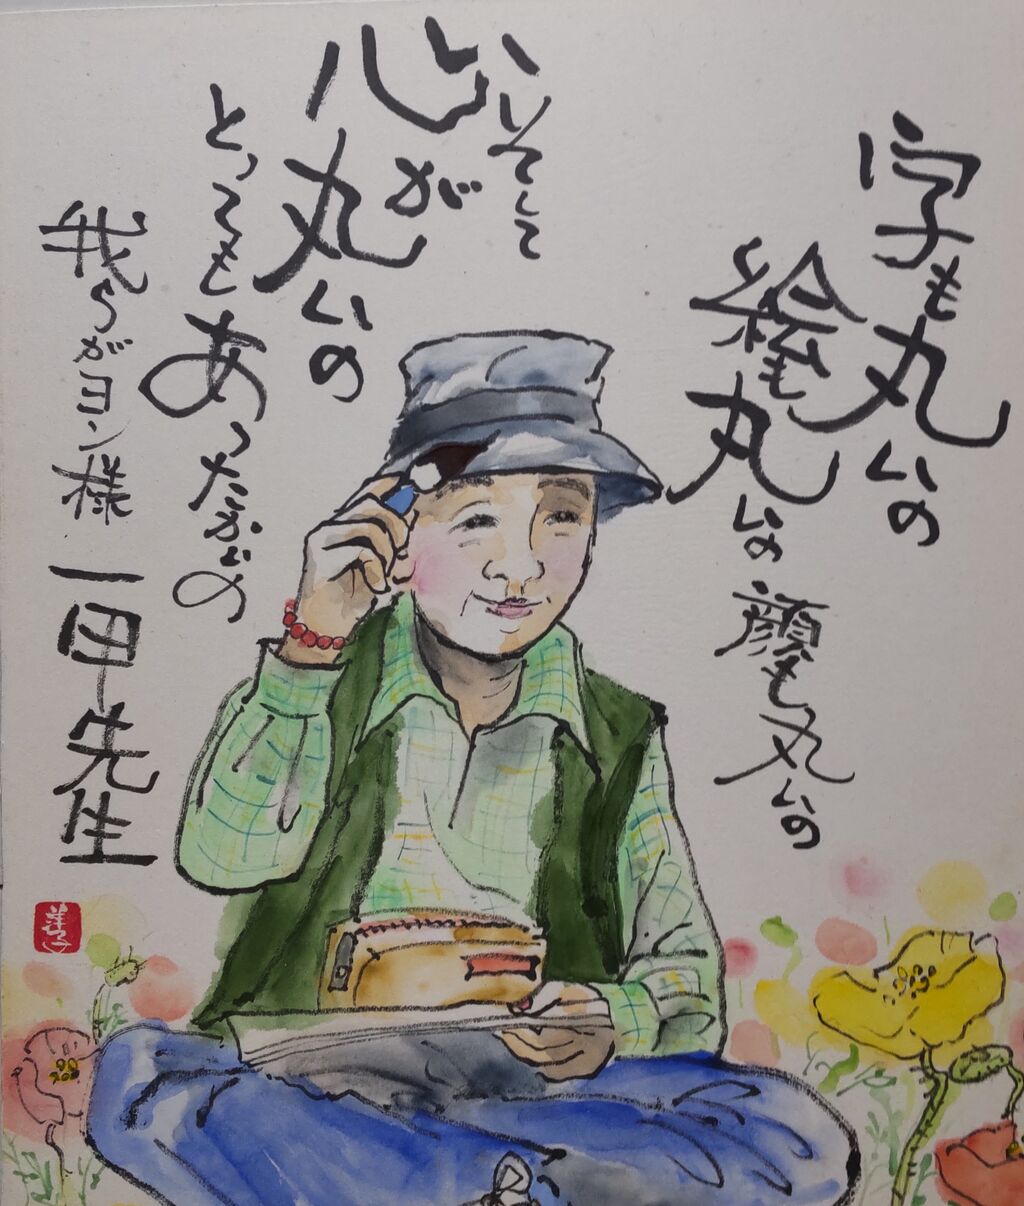 字も丸いの
絵も丸いの
顔も丸いの
そして
心が
丸いの
とっても
あったかいの
我らがヨン様
一甲先生